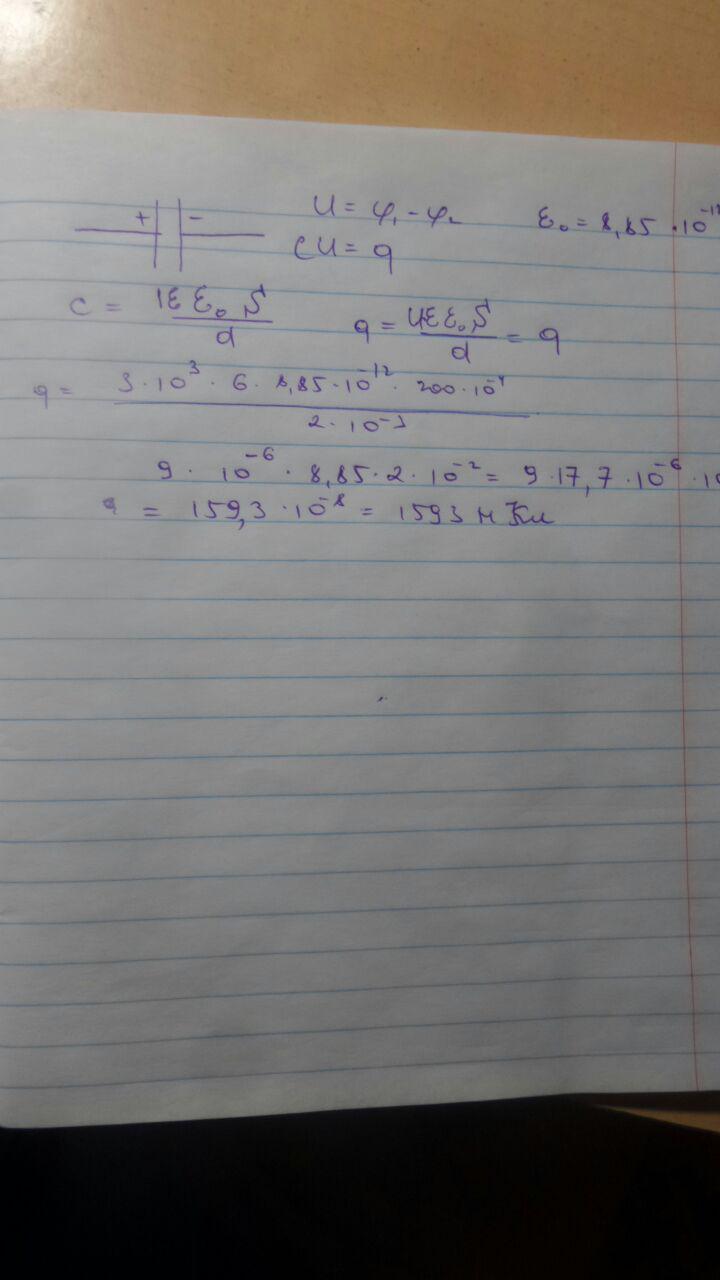 + - U = φ₁ - φ₂ ε₀ = 8,85 · 10⁻¹²
CU = q
C = 1εε₀S / d q = Uεε₀S / d = q
q = 3 · 10³ · 6 · 8,85 · 10⁻¹² · 200 · 10⁻⁴ / 2 · 10⁻³
9 · 10⁻⁶ · 8,85 · 2 · 10⁻² = 9 · 17,7 · 10⁻⁶ · 10
q = 159,3 · 10⁻⁸ = 1593 н Кл